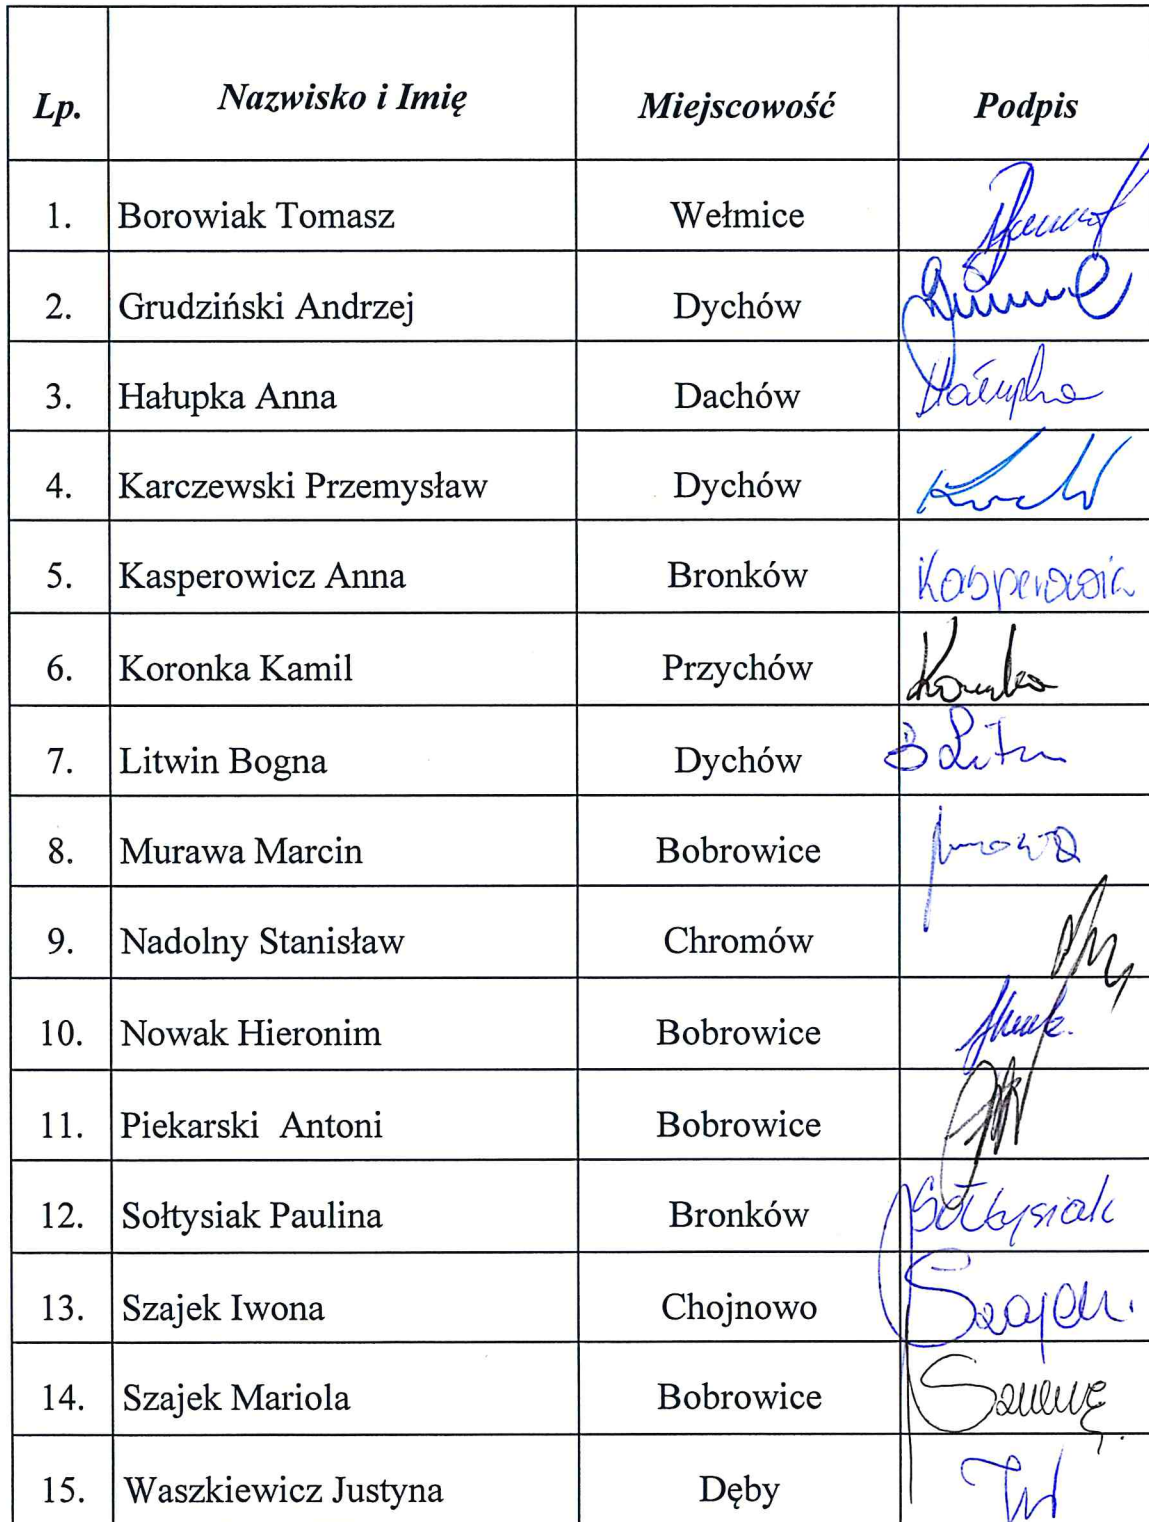 Lp. Nazwisko i Imię Miejscowość Podpis
1. Borowiak Tomasz Wełmice
2. Grudziński Andrzej Dychów
3. Hałupka Anna Dachów Hałupka
4. Karczewski Przemysław Dychów
5. Kasperowicz Anna Bronków Kasperowicz
6. Koronka Kamil Przychów
7. Litwin Bogna Dychów
8. Murawa Marcin Bobrowice
9. Nadolny Stanisław Chromów
10. Nowak Hieronim Bobrowice
11. Piekarski Antoni Bobrowice
12. Sołtysiak Paulina Bronków Sołtysiak
13. Szajek Iwona Chojnowo Szajek
14. Szajek Mariola Bobrowice
15. Waszkiewicz Justyna Dęby